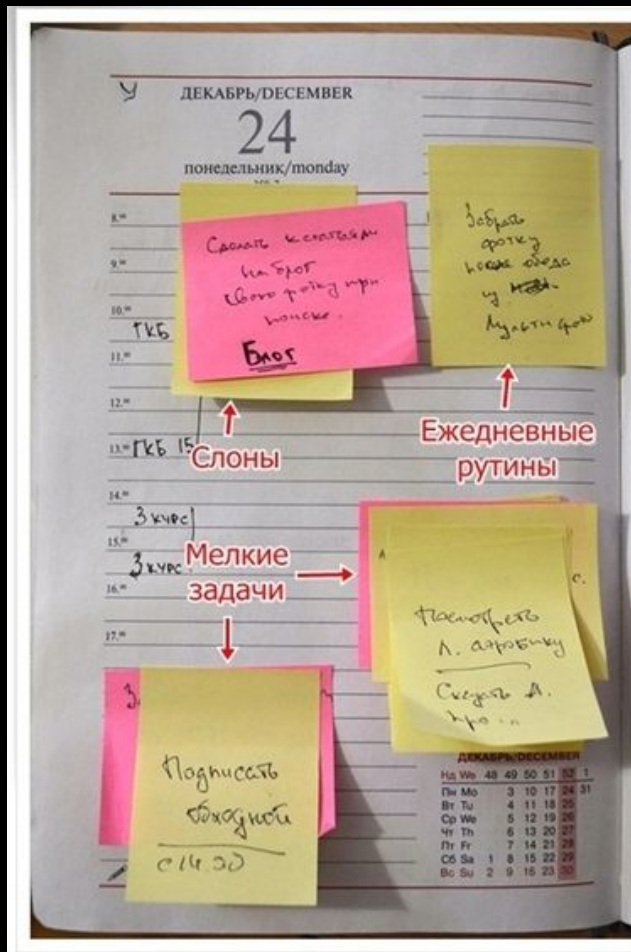 У
ДЕКАБРЬ/DECEMBER
24
понедельник/monday
8.00
9.00
10.00
ГКБ
11.00
12.00
13.00 ГКБ 15
14.00
3 курс
15.00
3 курс
16.00
17.00
Сделать к статьям
на блог
свою фотку при
поиске.
Блог
Забрать
фотку
после обеда
из
Мультифото
Слоны
Ежедневные
рутины
Мелкие
задачи
Посмотреть
А. аэробику
Сказать А.
про ...
Подписать
обходной
с 14.00
ДЕКАБРЬ/DECEMBER
Нд We 48 49 50 51 52 1
Пн Mo 3 10 17 24 31
Вт Tu 4 11 18 25
Ср We 5 12 19 26
Чт Th 6 13 20 27
Пт Fr 7 14 21 28
Сб Sa 1 8 15 22 29
Вс Su 2 9 16 23 30